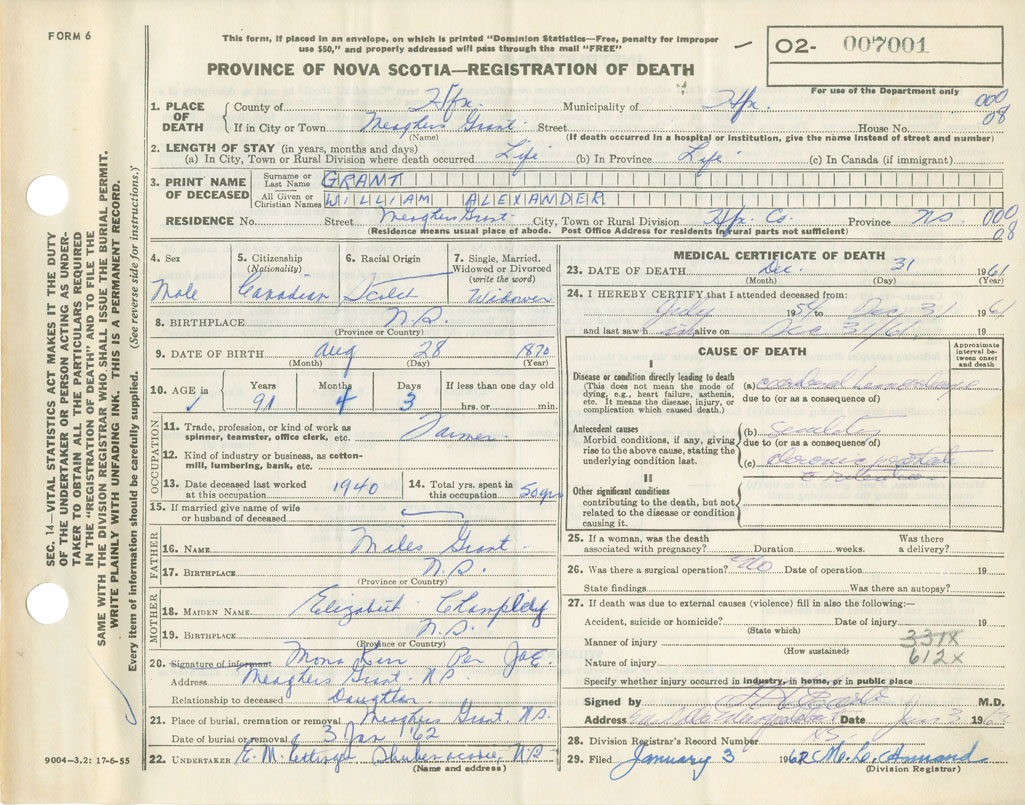 FORM 6
This form, if placed in an envelope, on which is printed "Dominion Statistics—Free, penalty for improper
use $50," and properly addressed will pass through the mail "FREE"
O2- 007001
PROVINCE OF NOVA SCOTIA—REGISTRATION OF DEATH
For use of the Department only
000
08
1. PLACE OF DEATH
County of Hfx. Municipality of Hfx.
If in City or Town Meaghers Grant Street House No.
(Name) (If death occurred in a hospital or institution, give the name instead of street and number)
2. LENGTH OF STAY (in years, months and days)
(a) In City, Town or Rural Division where death occurred Life (b) In Province Life (c) In Canada (if immigrant)
3. PRINT NAME OF DECEASED
Surname or Last Name GRANT
All Given or Christian Names WILLIAM ALEXANDER
RESIDENCE No. Street Meaghers Grant City, Town or Rural Division Hfx. Co. Province N.S. 000
08
(Residence means usual place of abode. Post Office Address for residents in rural parts not sufficient)
4. Sex
Male
5. Citizenship
(Nationality)
Canadian
6. Racial Origin
Scotch
7. Single, Married,
Widowed or Divorced
(write the word)
Widower
8. BIRTHPLACE N.S.
(Province or Country)
9. DATE OF BIRTH Aug 28 1870
(Month) (Day) (Year)
10. AGE in Years Months Days If less than one day old
91 4 3 hrs. or min.
OCCUPATION
11. Trade, profession, or kind of work as
spinner, teamster, office clerk, etc. Farmer
12. Kind of industry or business, as cotton-
mill, lumbering, bank, etc.
13. Date deceased last worked
at this occupation 1940
14. Total yrs. spent in
this occupation 50 yrs
15. If married give name of wife
or husband of deceased
FATHER
16. NAME Miles Grant
17. BIRTHPLACE N.S.
(Province or Country)
MOTHER
18. MAIDEN NAME Elizabeth
19. BIRTHPLACE N.S.
(Province or Country)
20. Signature of informant Mona Per
Address Meaghers Grant. N.S.
Relationship to deceased Daughter
21. Place of burial, cremation or removal Meaghers Grant, N.S.
Date of burial or removal 3 Jan '62
22. UNDERTAKER E. M. Ettinger Shubenacadie, N.S.
(Name and address)
MEDICAL CERTIFICATE OF DEATH
23. DATE OF DEATH Dec. 31 1961
(Month) (Day) (Year)
24. I HEREBY CERTIFY that I attended deceased from:
July 1959 to Dec 31 1961
and last saw h im alive on Dec 31/61 19
CAUSE OF DEATH
Approximate
interval be-
tween onset
and death
I
Disease or condition directly leading to death
(This does not mean the mode of
dying, e.g., heart failure, asthenia,
etc. It means the disease, injury, or
complication which caused death.)
(a) cerebral hemorrhage
due to (or as a consequence of)
Antecedent causes
Morbid conditions, if any, giving
rise to the above cause, stating the
underlying condition last.
(b)
due to (or as a consequence of)
(c) chronic
II
Other significant conditions
contributing to the death, but not
related to the disease or condition
causing it.
25. If a woman, was the death
associated with pregnancy? Duration weeks. Was there
a delivery?
26. Was there a surgical operation? No Date of operation 19
State findings Was there an autopsy?
27. If death was due to external causes (violence) fill in also the following:—
Accident, suicide or homicide? Date of injury 19
(State which)
Manner of injury 331X
(How sustained) 612X
Nature of injury
Specify whether injury occurred in industry, in home, or in public place
Signed by M.D.
Address Date Jan 3 1962
28. Division Registrar's Record Number
29. Filed January 3 1962
(Division Registrar)
SEC. 14—VITAL STATISTICS ACT MAKES IT THE DUTY
OF THE UNDERTAKER OR PERSON ACTING AS UNDER-
TAKER TO OBTAIN ALL THE PARTICULARS REQUIRED
IN THE "REGISTRATION OF DEATH" AND TO FILE THE
SAME WITH THE DIVISION REGISTRAR WHO SHALL ISSUE THE BURIAL PERMIT.
WRITE PLAINLY WITH UNFADING INK. THIS IS A PERMANENT RECORD.
Every item of information should be carefully supplied. (See reverse side for instructions.)
9004-3.2: 17-6-55